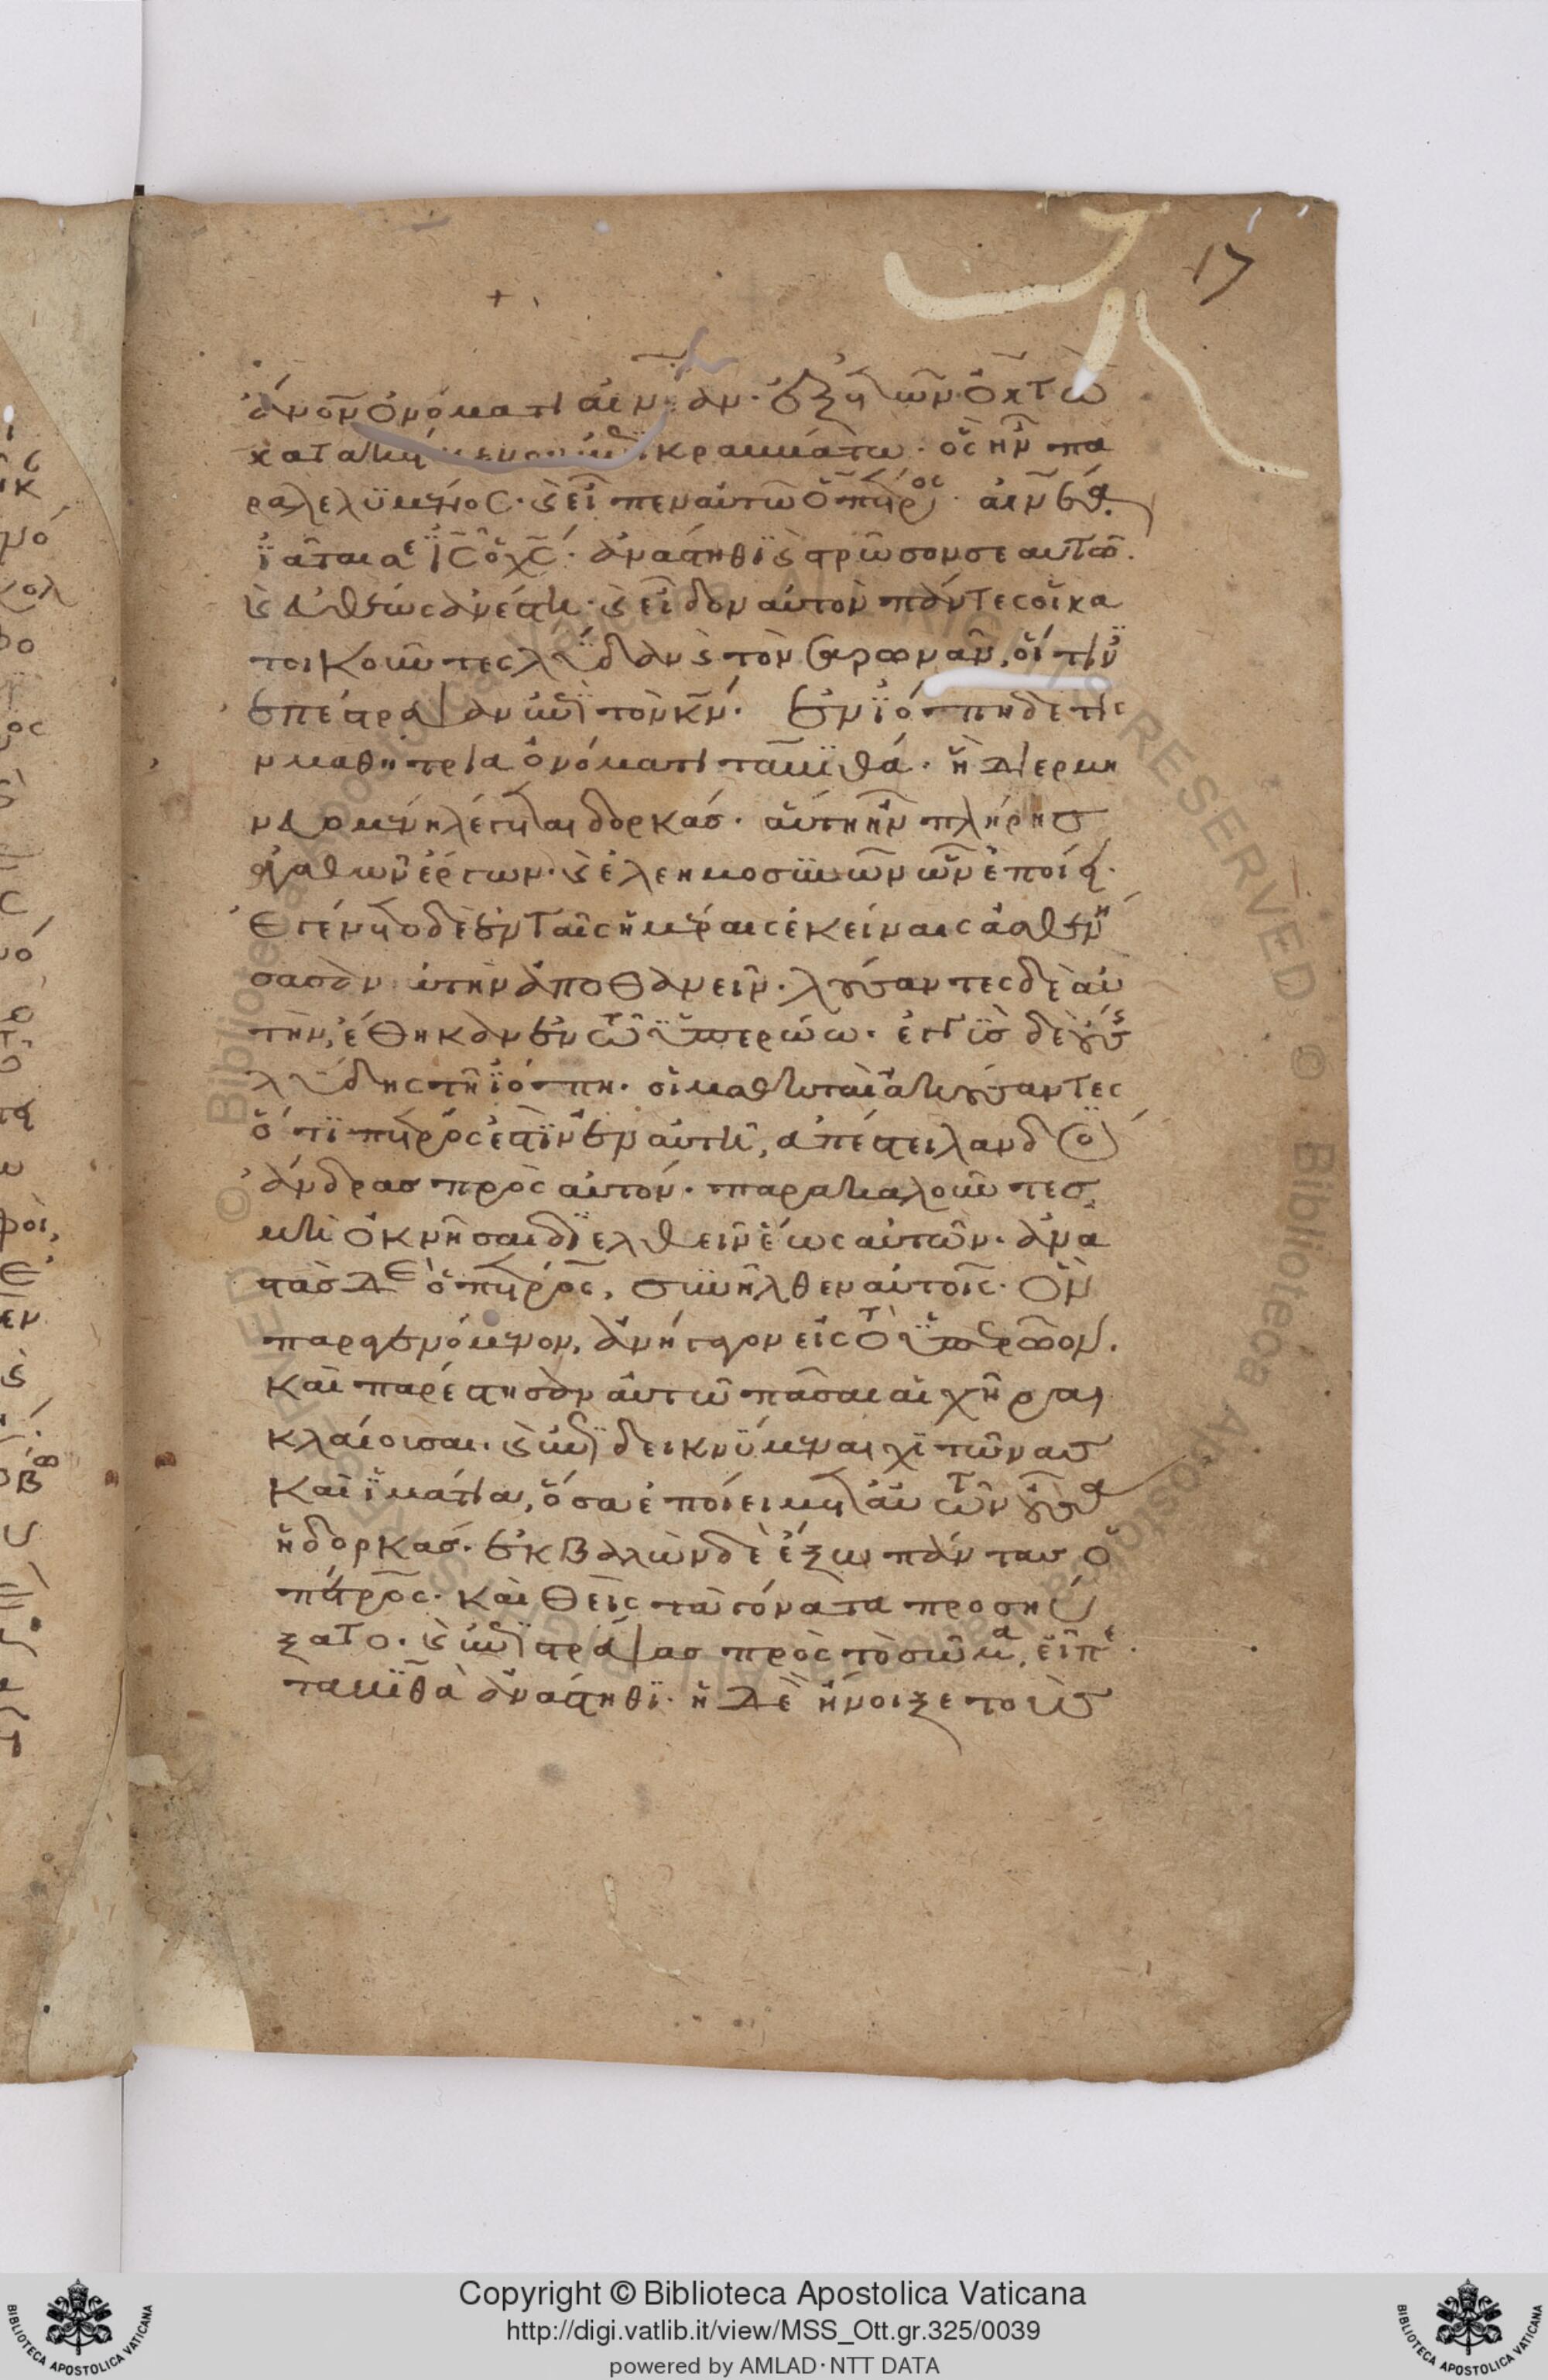 17
ἄνον ὀνόματι αἰνέαν· ἐξ ἐτῶν ὀκτὼ
κατακείμενον ἐπὶ κραμμάτω· ὃς ἦν πα
ραλελϋμένος· καὶ εἶπεν αὐτῶ ὁ πέτρος· αἰνέα
ἰᾶταί σε ις ὁ χς· ἀνάστηθϊ καὶ στρῶσον σεαυτῶ.
καὶ εὐθέως ἀνέστη· καὶ εἶδον αὐτὸν πάντες οἱ κα
τοικοῦντες λύδδαν καὶ τὸν σαρωνᾶν, οἵτινες
ἐπέστρεψαν ἐπὶ τὸν κν. ἐν ϊόππη δέ τις
ἦν μαθήτρια ὀνόματι ταμϊθά· ἣ διερμη
νευομένη λέγεται δορκάσ· αὕτη ἦν πλήρησ
ἀγαθῶν ἔργων· καὶ ἐλεημοσϋνῶν ὧν ἐποίει·
ἐγένετο δὲ ἐν ταῖς ἡμέραις ἐκείναις ἀσθενή
σασαν αὐτὴν ἀποθανεῖν· λούσαντες δὲ αὐ
τὴν, ἔθηκαν ἐν τῶ ὑπερώω· ἐγγϊσ δὲ οὔσης
λύδδης τῆ ϊόππη· οἱ μαθηταὶ ἀκούσαντες
ὅτϊ πέτρος ἐστὶν ἐν αὐτῆ, ἀπέστειλαν δύο
ἄνδρασ πρὸς αὐτόν· παρακαλοῦντεσ
μὴ ὀκνῆσαι δϊελθεῖν ἕως αὐτῶν· ἀνα
στὰσ δὲ ὁ πέτρος, συνῆλθεν αὐτοῖς· ὃν
παραγενόμενον, ἀνήγαγον εἰς τὸ ὑπερῶον.
καὶ παρέστησαν αὐτῶ πᾶσαι αἱ χῆραι
κλαίουσαι· καὶ ἐπϊδεικνϋμεναι χϊτῶνασ
καὶ ϊμάτια, ὅσα ἐποίει μετ' αὐτῶν οὖσα
ἡ δορκάσ· ἐκβαλὼν δὲ ἔξω πάντασ ὁ
πέτρος· καὶ θεὶς τὰ γόνατα προσηύ
ξατο· καὶ ἐπϊστρέψασ πρὸς τὸ σῶμα, εἶπε·
ταμϊθὰ ἀνάστηθϊ· ἡ δὲ ἤνοιξε τοὺσ
Copyright © Biblioteca Apostolica Vaticana
http://digi.vatlib.it/view/MSS_Ott.gr.325/0039
powered by AMLAD·NTT DATA